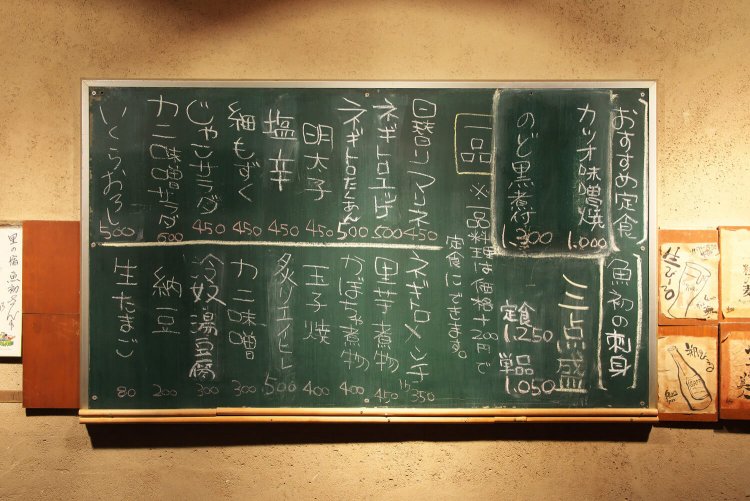 おすすめ定食
カツオ味噌焼 1,000
のど黒煮付 1,300
魚初の刺身
三点盛
定食 1,250
単品 1,050
一品
※一品料理は価格+200円で
定食にできます。
日替りマリネ 450
ネギトロユッケ 500
ネギトロたくあん 500
明太子 450
塩辛 450
細もずく 450
じゃこサラダ 450
カニ味噌サラダ 600
いくらおろし 500
ネギトロメンチ 1ヶ350
里芋煮物 450
かぼちゃ煮物 400
玉子焼 400
炙りエイヒレ 500
カニ味噌 300
冷奴・湯豆腐 300
納豆 200
生たまご 80
生ビール